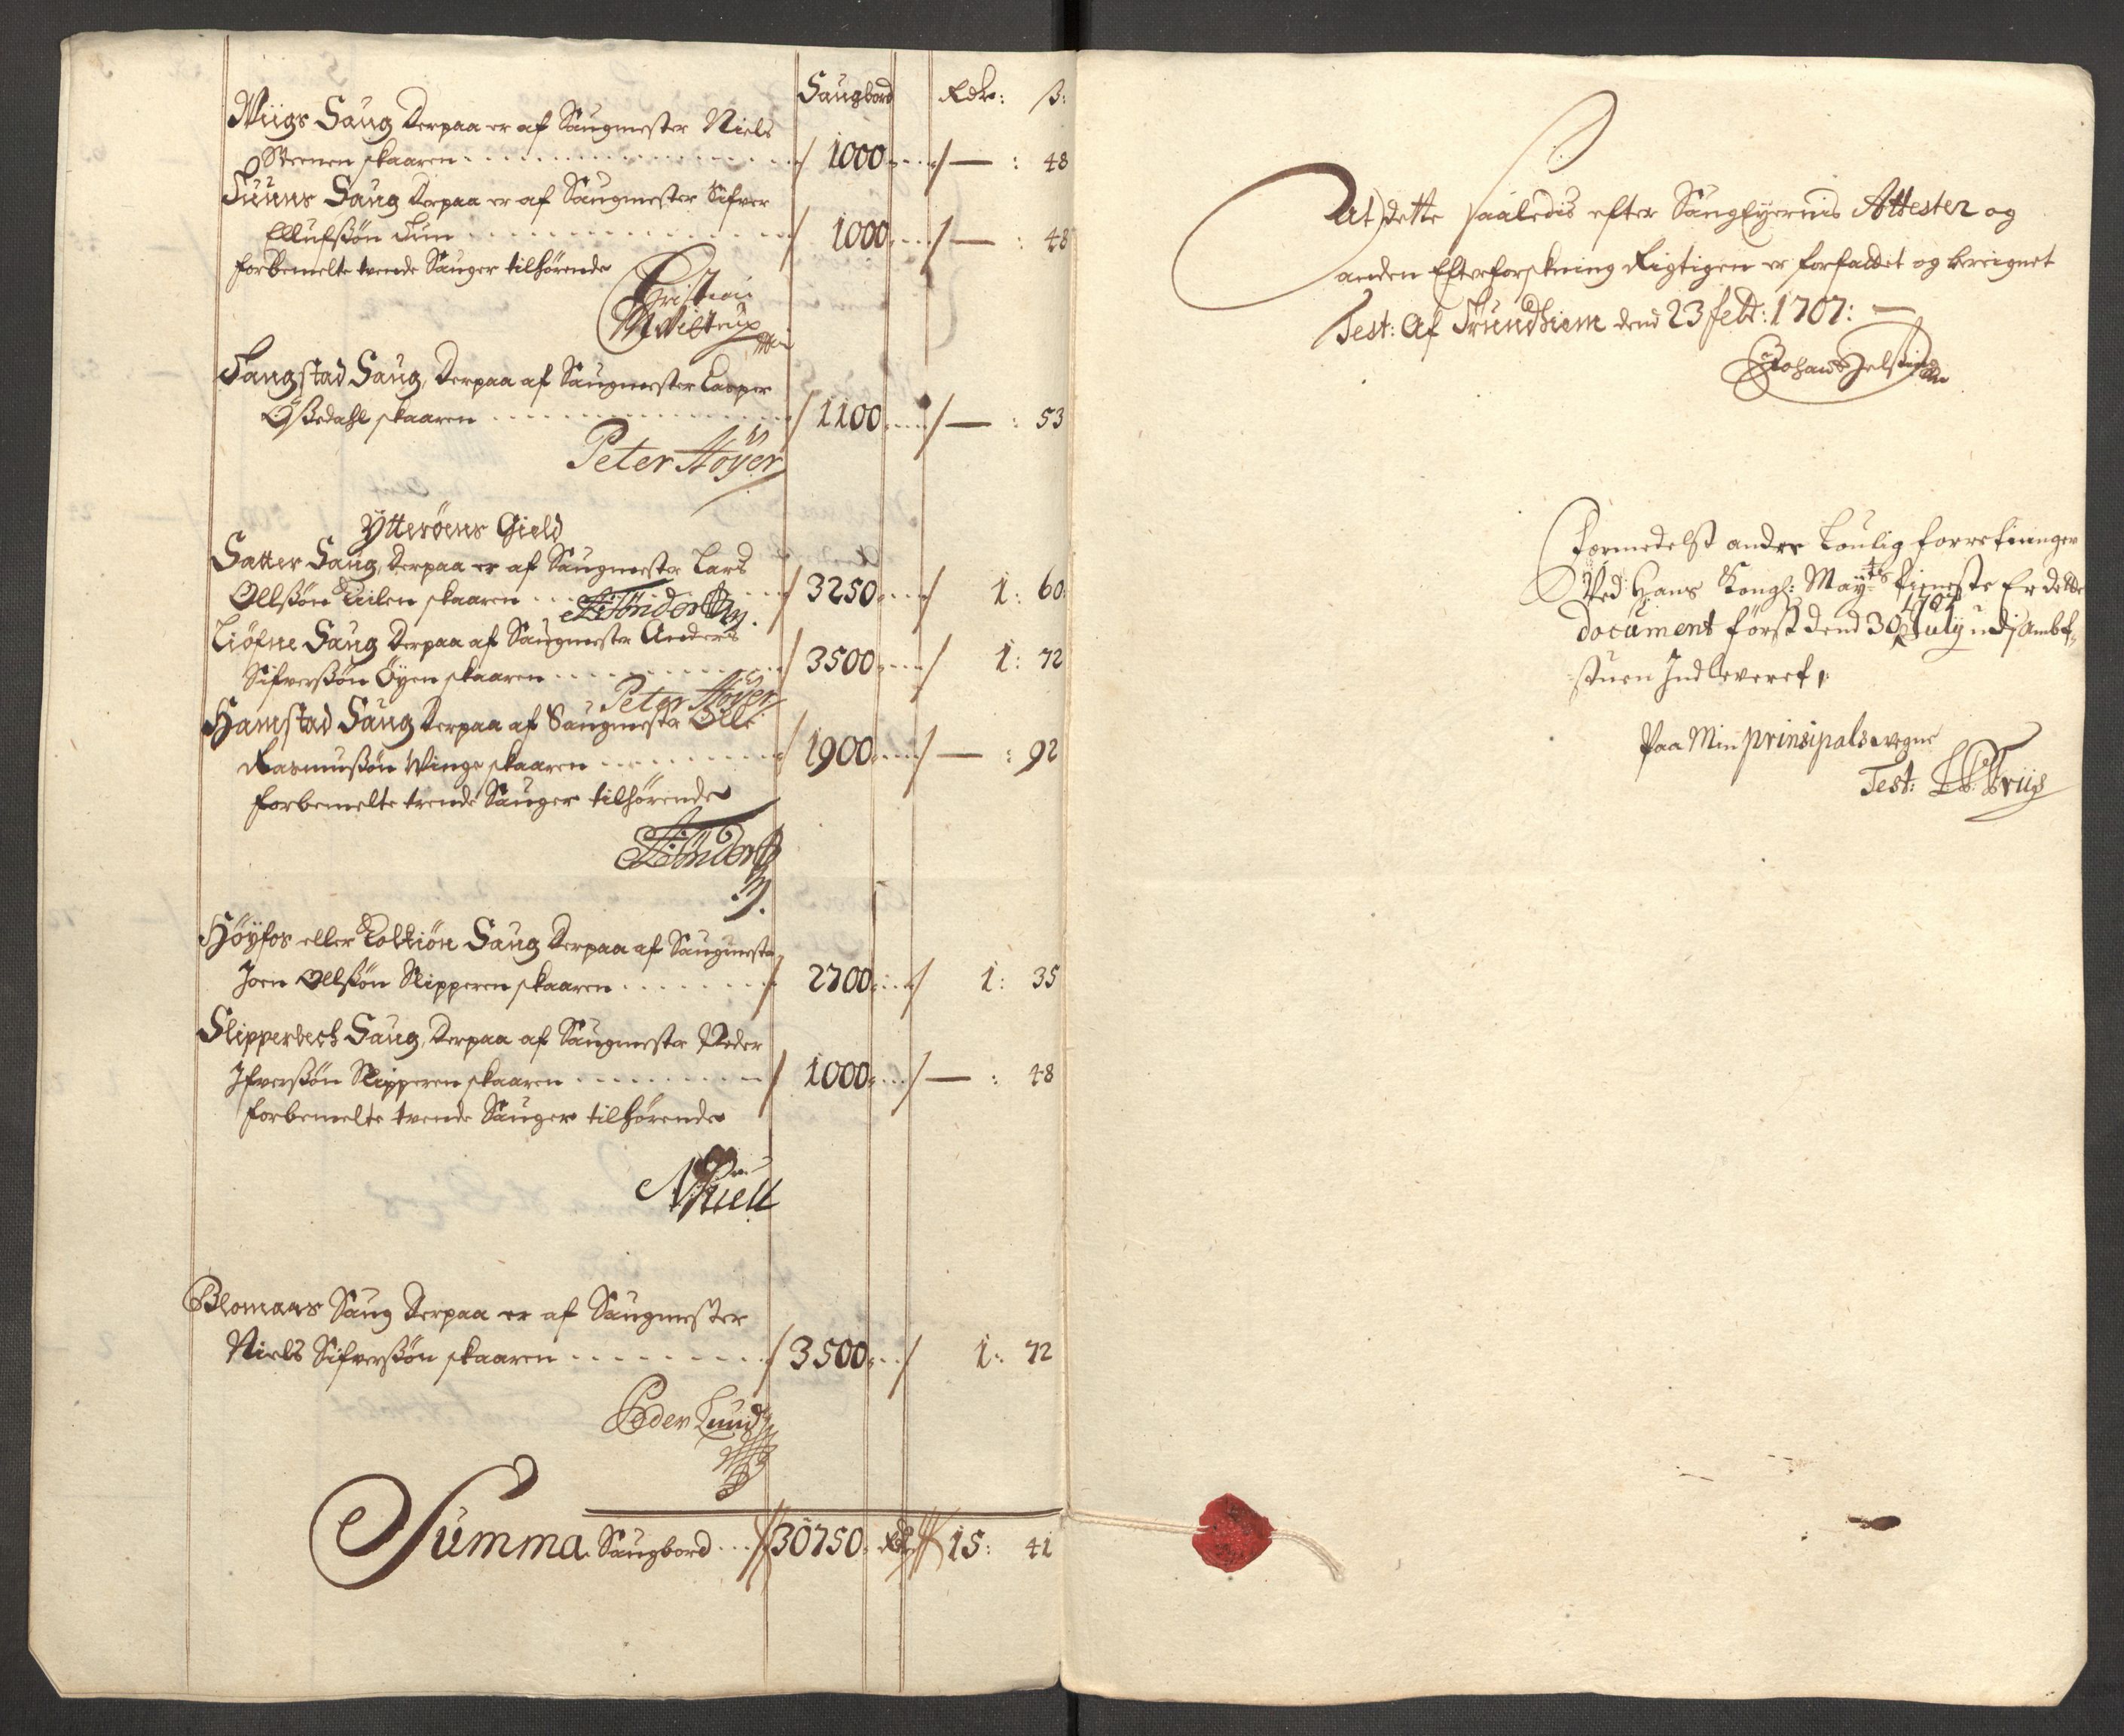 Saugbord Rdlr: ß:
Wiigs Saug Derpaa er af Saugmester Niels
Steenen skaaren 1000 — : 48
Suuns Saug Derpaa er af Saugmester Sifver
Ellufssøn Sun 1000 — : 48
forbemelte tvende Sauger tilhørende
Christian
Mvilstrup
Sangstad Saug, Derpaa af Saugmester Casper
Ößedahl skaaren 1100 — : 53
Peter Höyer
Ytterøens Gield
Satter Saug, Derpaa er af Saugmester Lars
Ollssøn skaaren 3250 1: 60
Liöfne Saug Derpaa af Saugmester Anders
Sifverssøn Öyen skaaren 3500 1: 72
Peter Höyer
Hamstad Saug Derpaa af Saugmester Olle
Rasmussøn Winge skaaren 1900 — : 92
forbemelte trende Sauger tilhørende
Höyfos eller Saug Derpaa af Saugmester
Joen Ollssøn Slipperen skaaren 2700 1: 35
Slipperbech Saug, Derpaa af Saugmester Peder
Ifverssøn Slipperen skaaren 1000 — : 48
forbemelte tvende Sauger tilhørende
Blomaas Saug Derpaa er af Saugmester
Niels Sifverssøn skaaren 3500 1: 72
Peder Lund
Summa Saugbord 30750 Rdr 15: 41
At dette saaledis efter SaugEyernis Attester og
anden Efterforskning Rigtigen er forfattet og bereignet
Test: Af Trundhiem dend 23 febr: 1707: —
Formedelst andre Loulig forretninger
Ved Hans Kongl: Mayts tieneste Er dette
document først dend 30 July 1707 udj Ambt
stuen Indleveret
Paa Min prinsipals vegne
Test: